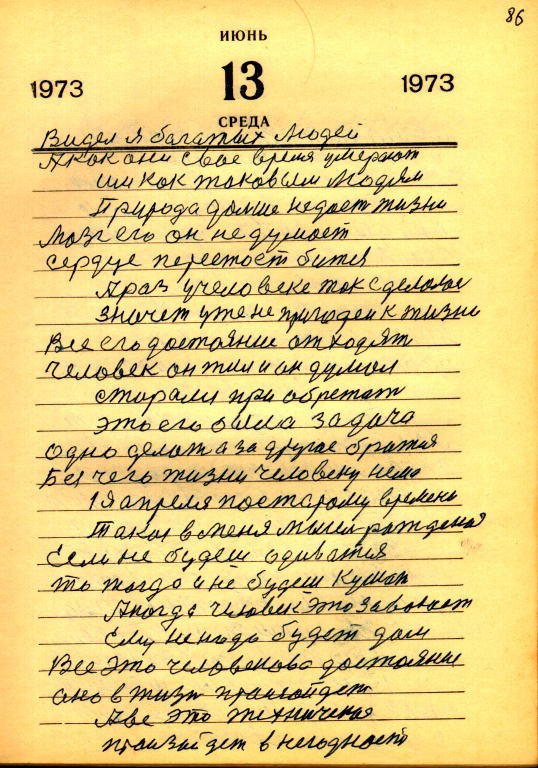 86
ИЮНЬ
1973 13 1973
СРЕДА
Видел я багатых людей
А как они свое время умерают
им как таковым людям
Природа дольше недает жизни
Мозг его он не думает
Сердце перестает битя
Араз учеловеке так сделалос
значет уже не пригоден к жизни
Все его достояние отходят
Человек он жил и он думал
старался при обретат
это его была задача
одно делат а за другое братся
Без чего жизни человеку нема
1я апреля постарому времени
Такая в меня мысл рождена
Если не будеш одиватся
то тогда и не будеш Кушат
Аногда человек это завоюет
Ему ненада будет дом
Все это человекова достояние
оно в жизи произойдет
Аве это техническая
произайдет в негодност